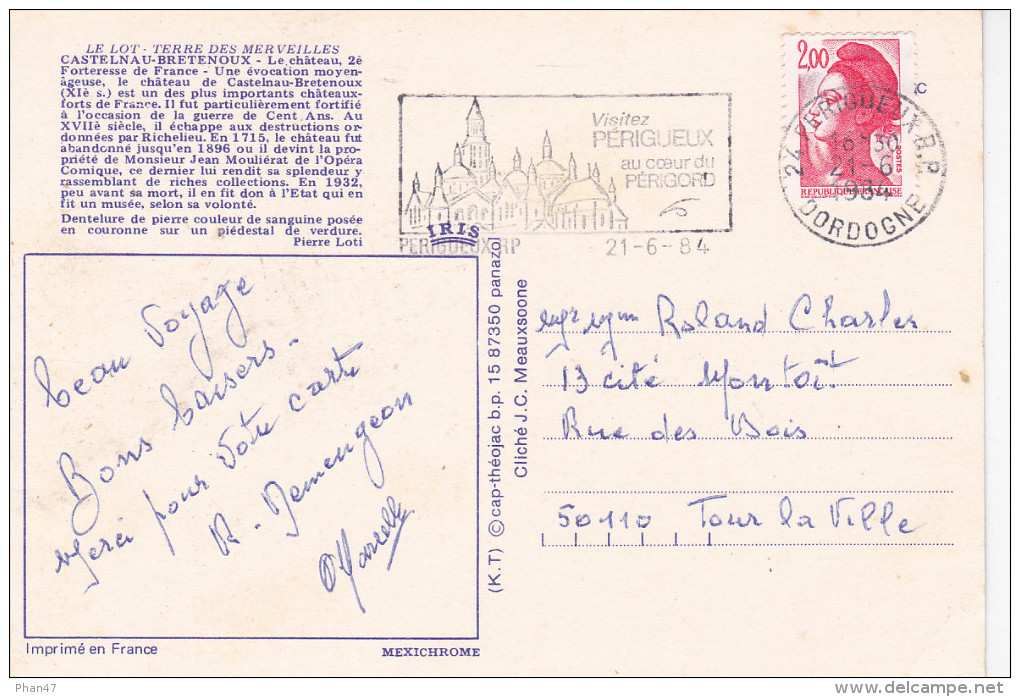 LE LOT - TERRE DES MERVEILLES
CASTELNAU-BRETENOUX - Le château, 2è
Forteresse de France - Une évocation moyen-
âgeuse, le château de Castelnau-Bretenoux
(XIè s.) est un des plus importants châteaux-
forts de France. Il fut particulièrement fortifié
à l'occasion de la guerre de Cent Ans. Au
XVIIè siècle, il échappe aux destructions or-
données par Richelieu. En 1715, le château fut
abandonné jusqu'en 1896 ou il devint la pro-
priété de Monsieur Jean Mouliérat de l'Opéra
Comique, ce dernier lui rendit sa splendeur y
rassemblant de riches collections. En 1932,
peu avant sa mort, il en fit don à l'Etat qui en
fit un musée, selon sa volonté.
Dentelure de pierre couleur de sanguine posée
en couronne sur un piédestal de verdure.
Pierre Loti
Visitez
PÉRIGUEUX
au cœur du
PÉRIGORD
PERIGUEUX RP
21-6-84
IRIS
2,00
POSTES
REPUBLIQUE FRANÇAISE
24 PERIGUEUX R.P
16-30
21-6
1984
DORDOGNE
Beau Voyage
Bons baisers.
Merci pour votre carte
R. Demengeon
Marcelle
(K.T) © cap-théojac b.p. 15 87350 panazol
Cliché J.C. Meauxsoone
Roland Charles
13 cité Montoit
Rue des Bois
50110 Tour la Ville
Imprimé en France
MEXICHROME
Phan47
delcampe.net